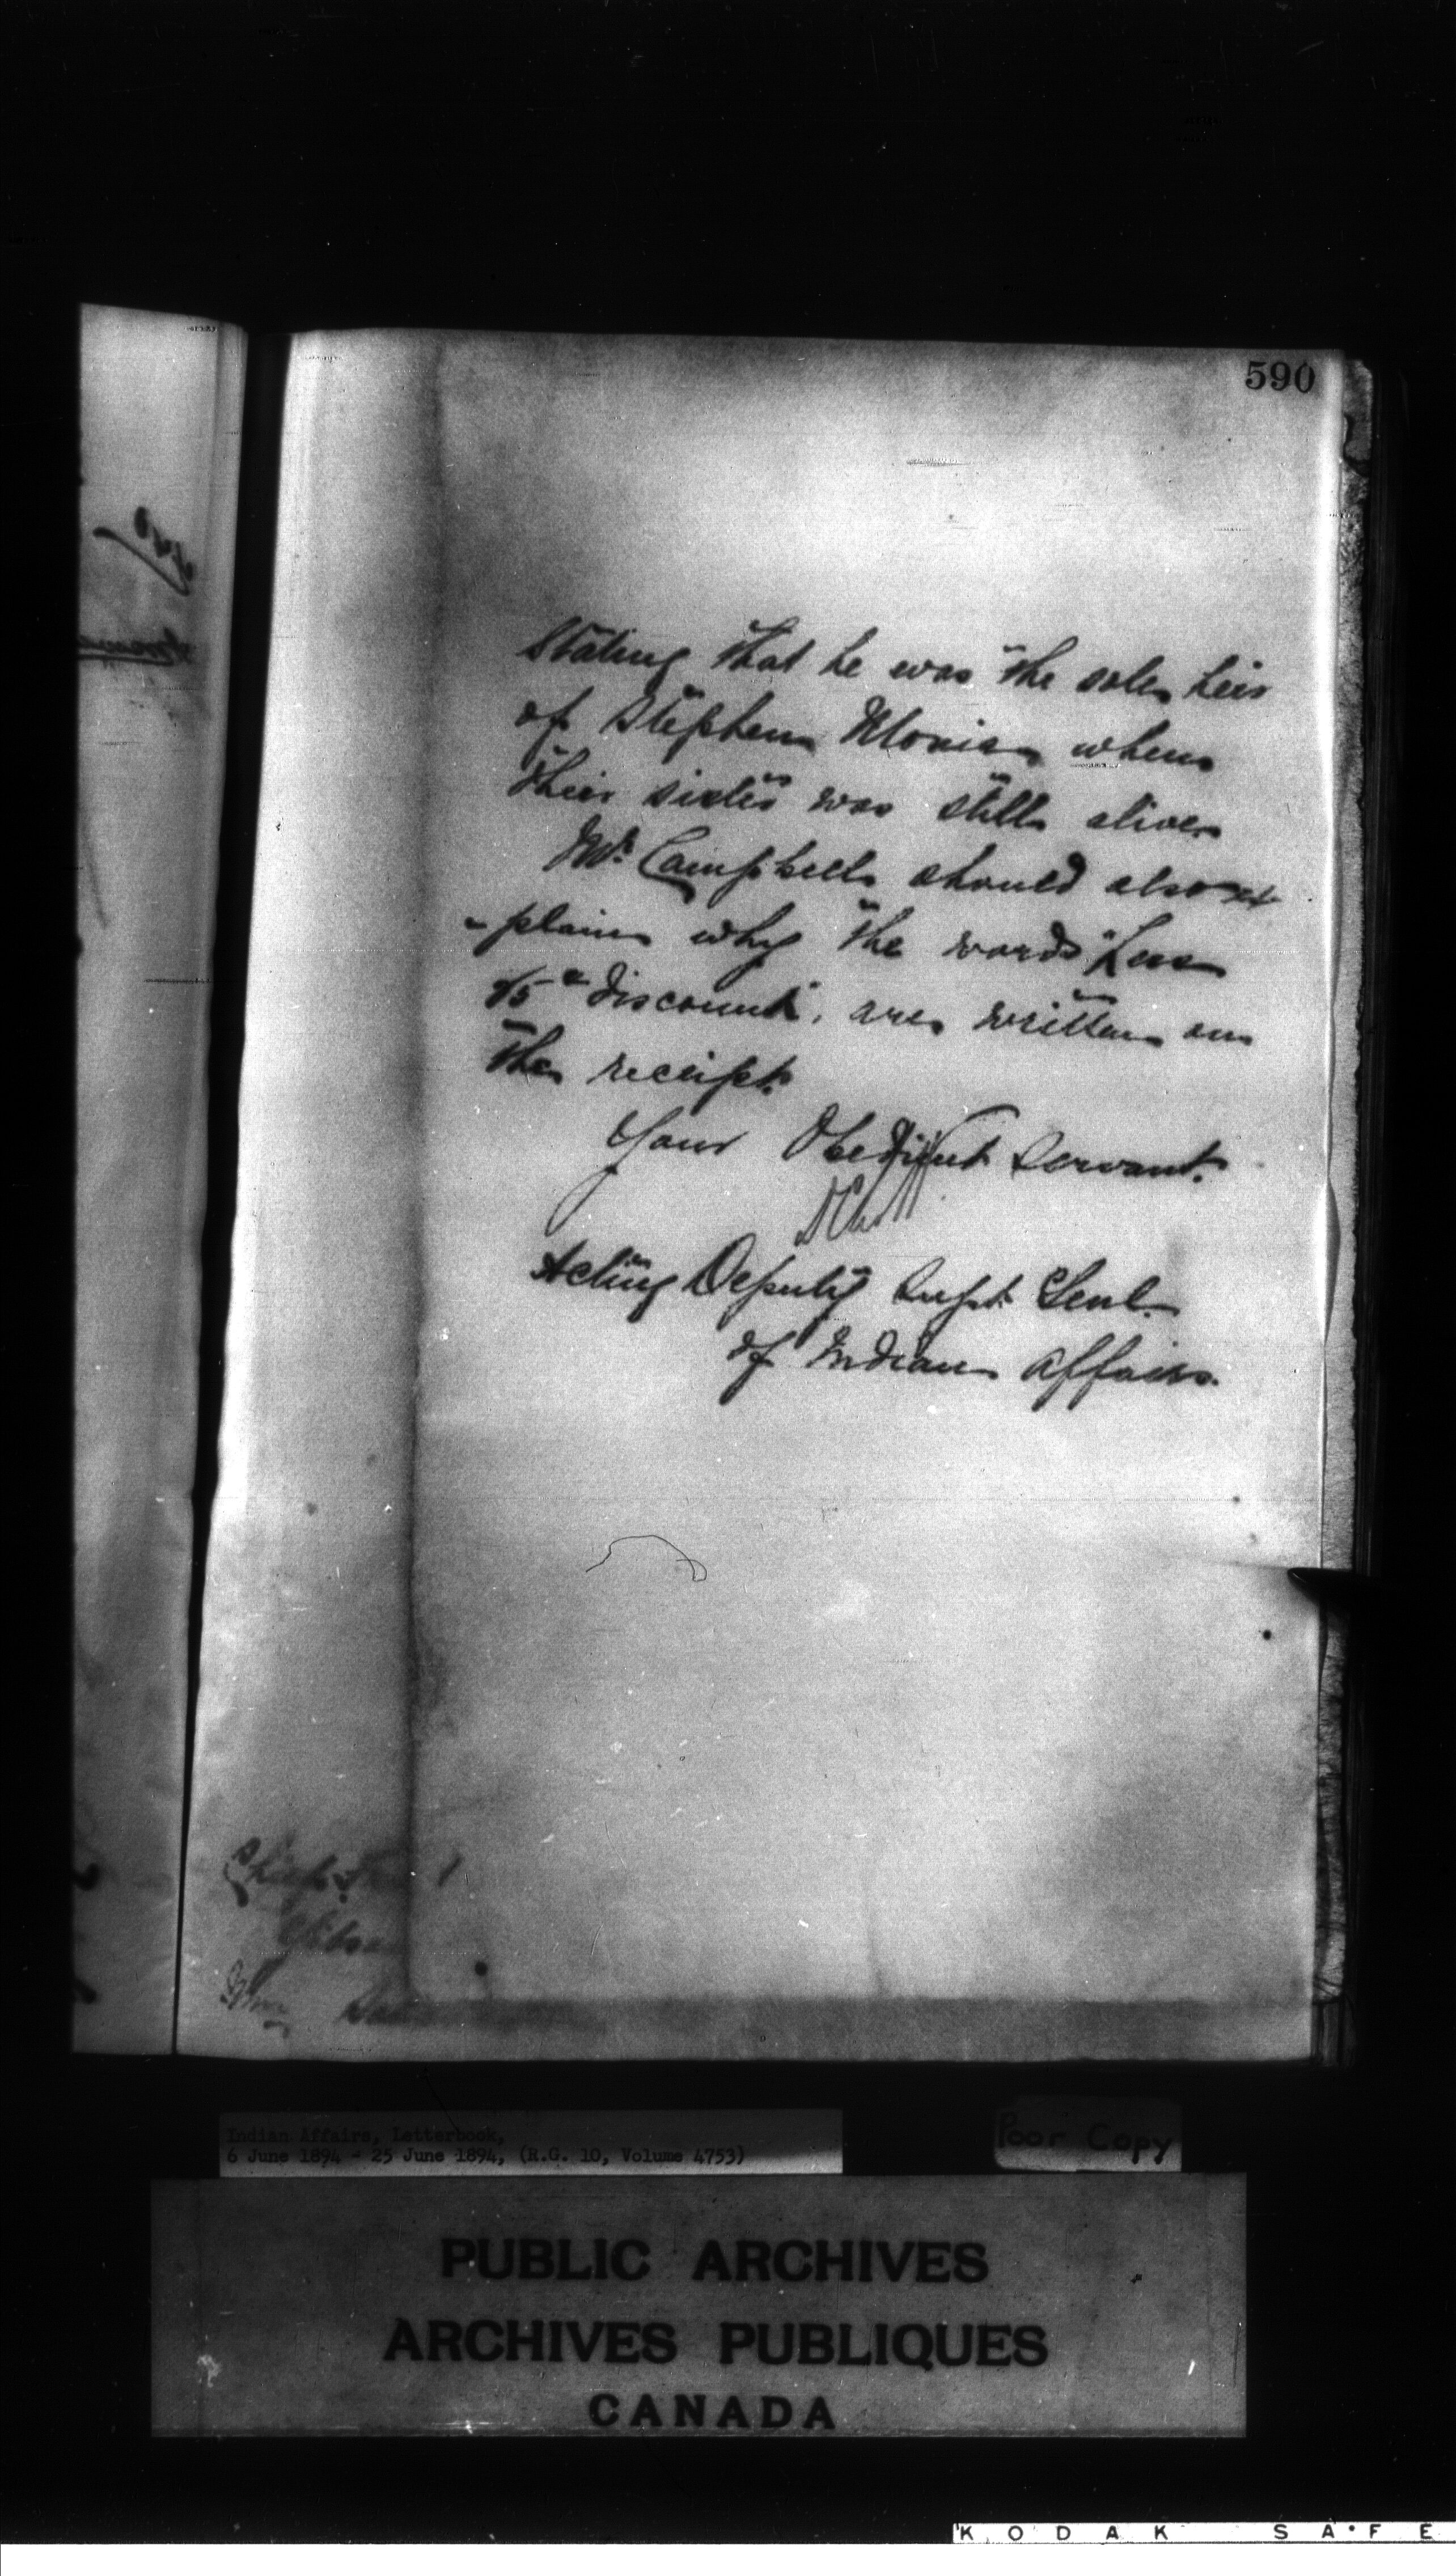 590
Stating that he was the sole heir
of Stephen when
their sister was still alive
Mr. Campbell should also ex-
-plain why the words "Less
discount", are written on
the receipt.
Your Obedient Servant.
Acting Deputy Supt. Genl.
of Indian Affairs.
Indian Affairs, Letterbook,
6 June 1894 - 25 June 1894, (R.G. 10, Volume 4753)
Poor Copy
PUBLIC ARCHIVES
ARCHIVES PUBLIQUES
CANADA
KODAK SAFE